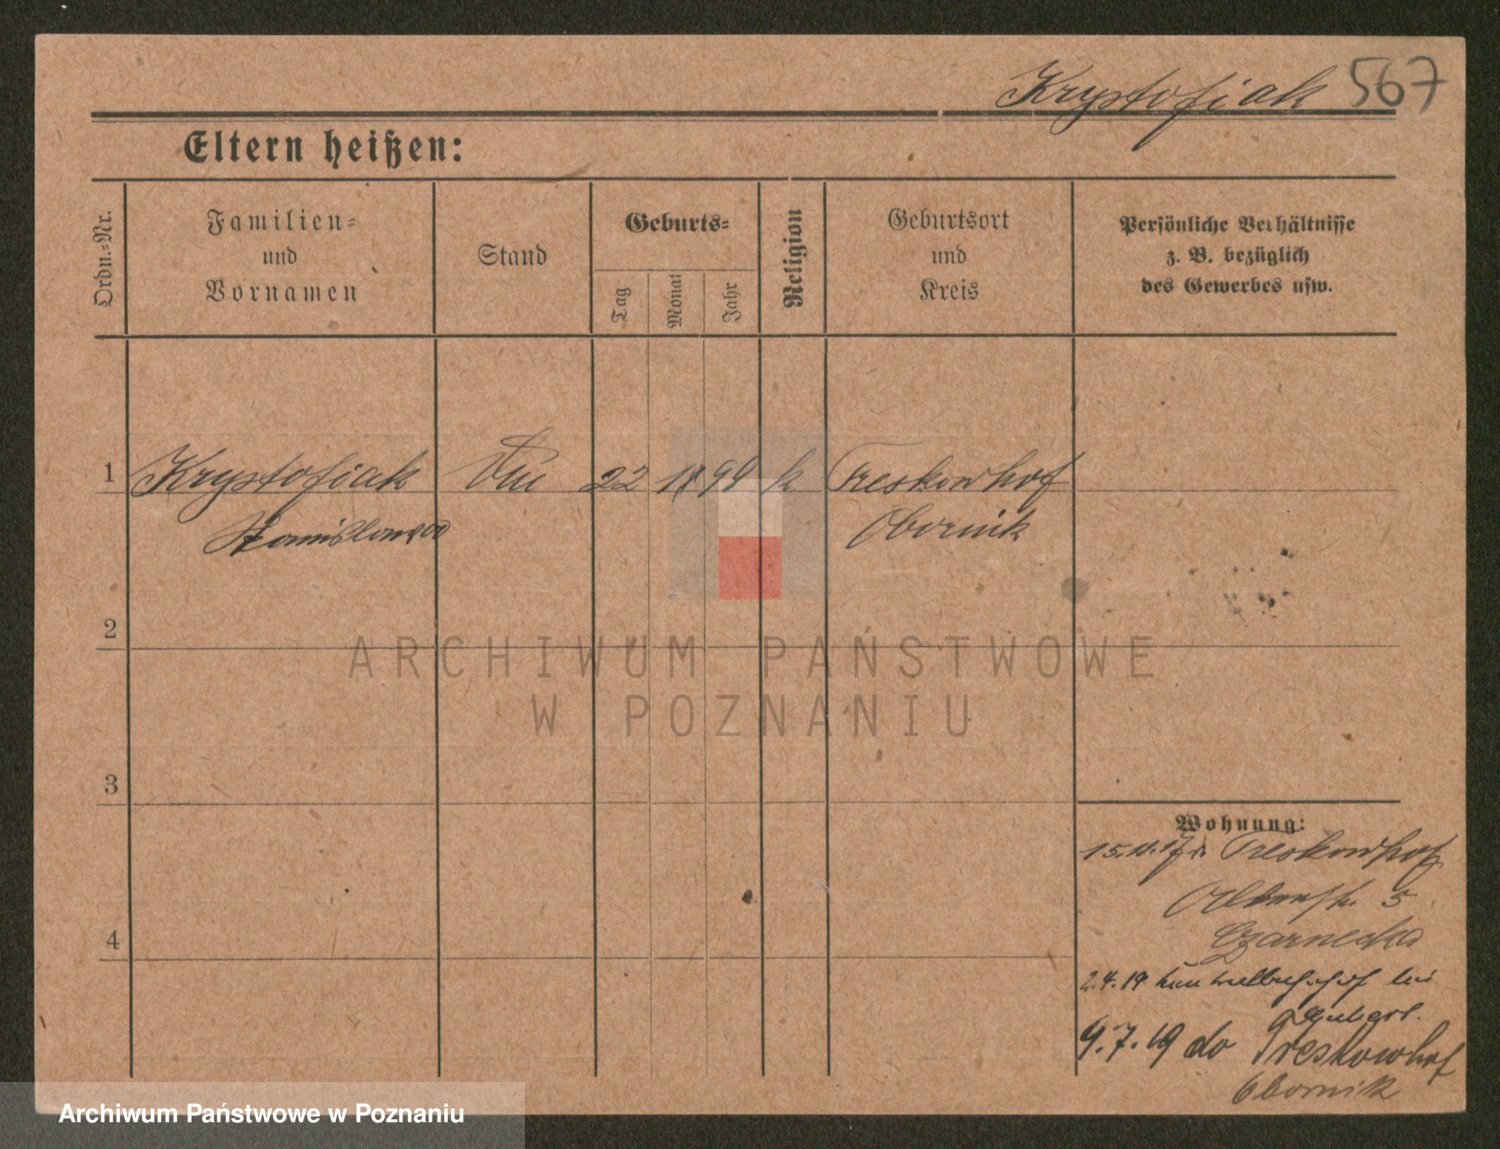 Krystofiak 567
Eltern heißen:
Ordn.-Nr.
Familien-
und
Vornamen
Stand
Geburts-
Tag
Monat
Jahr
Religion
Geburtsort
und
Kreis
Persönliche Verhältnisse
z. B. bezüglich
des Gewerbes usw.
1 Krystofiak 22 99 k Treskowhof
Stanislawa Obornik
2
3
4
Wohnung:
15.11.17 Treskowhof
5
Czarnecka
2.4.19
9.7.19 do Treskowhof
Obornik
ARCHIWUM PAŃSTWOWE
W POZNANIU
Archiwum Państwowe w Poznaniu